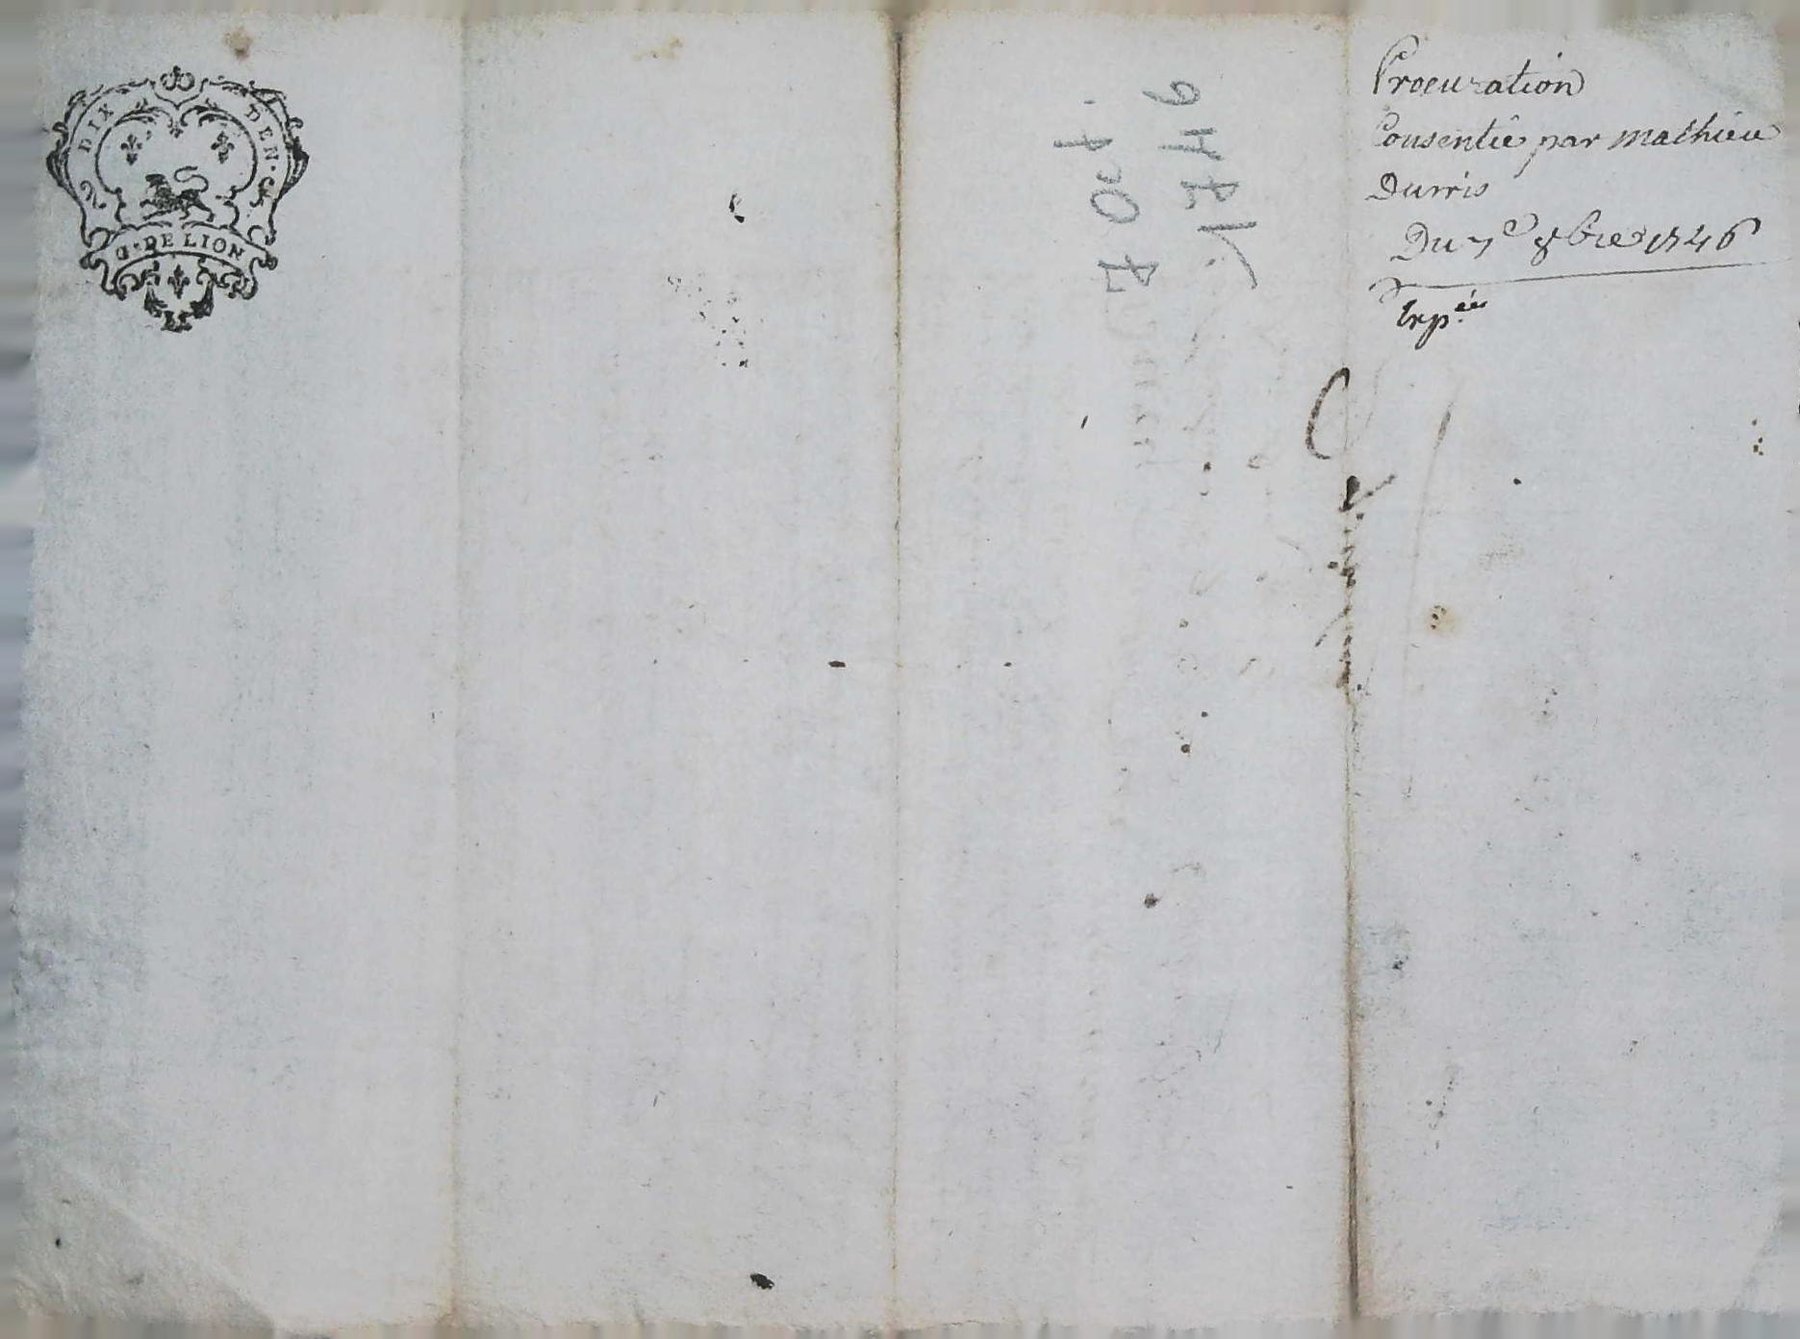 DIX DEN.
G. DE LION
Procuration
Consentie par mathieu
Durris
Du 7e 8bre 1746
Expée